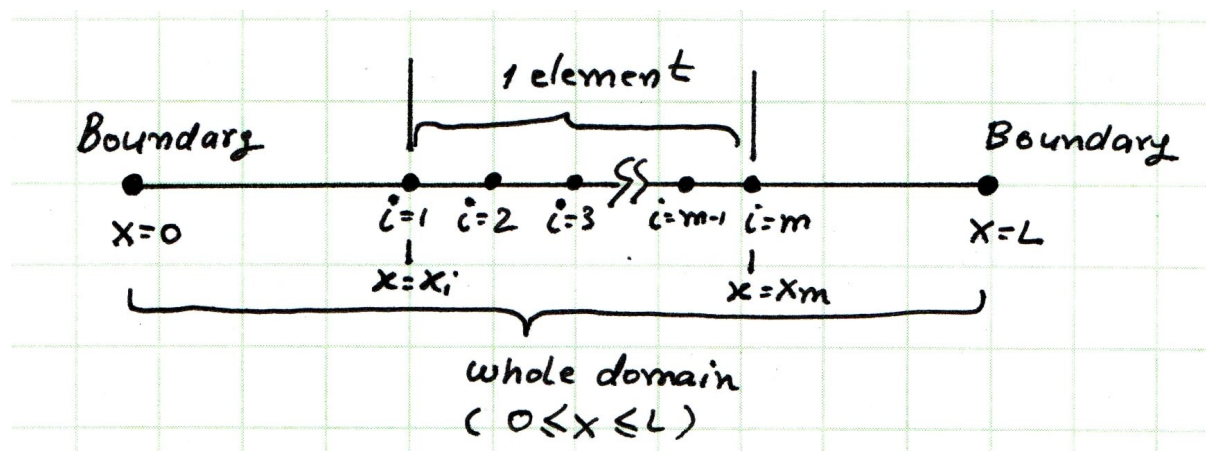 1 element
Boundary Boundary
i=1 i=2 i=3 i=m-1 i=m
x=0 x=L
x=xi x=xm
whole domain
( 0≤x≤L)